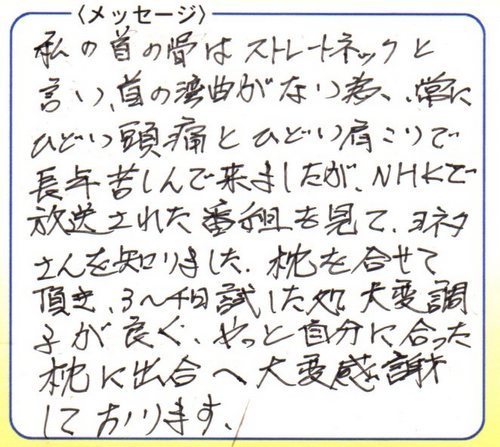 〈メッセージ〉
私の首の骨はストレートネックと
言い、首の湾曲がない為、常に
ひどい頭痛とひどい肩こりで
長年苦しんで来ましたが、NHKで
放送された番組を見て、ヨネタ
さんを知りました。枕を合せて
頂き、3〜4日試した処、大変調
子が良く、やっと自分に合った
枕に出合へ大変感謝
しております。